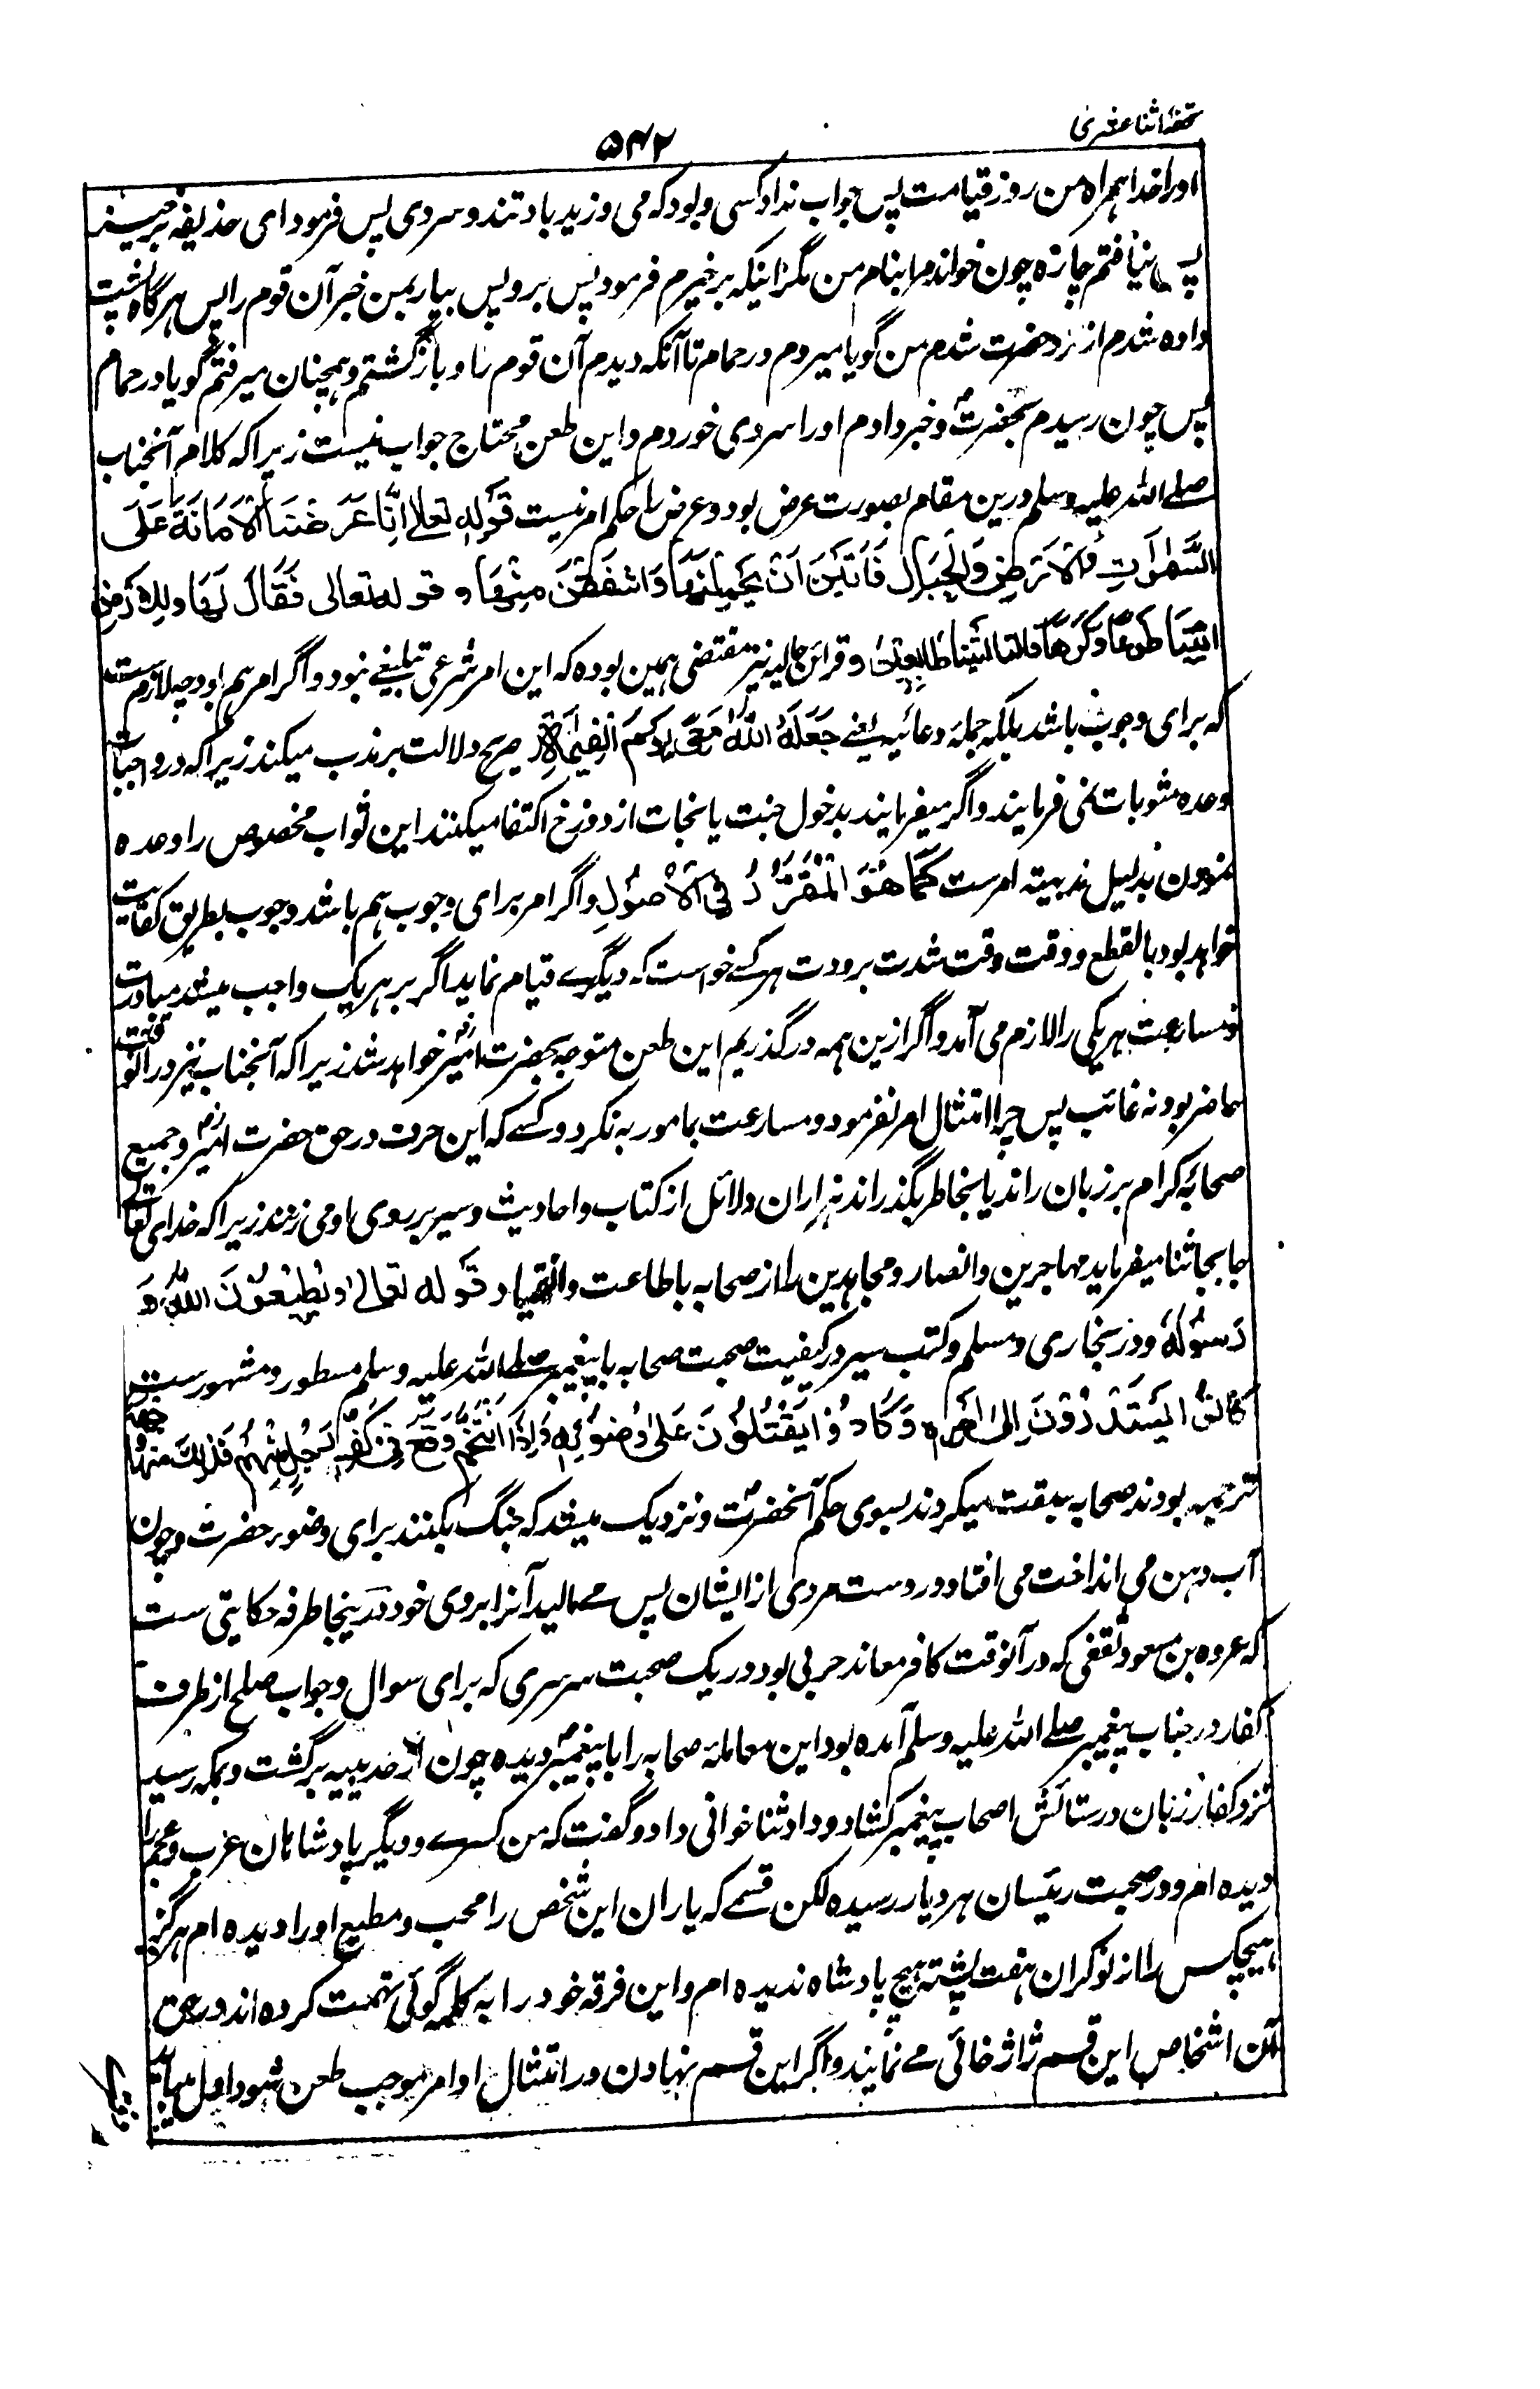 تحفهٔ اثنا عشری
۵۴۲
اورا خدا همراه من روز قیامت پس جواب نداد کسی و بود که می وزید باد تند و سردی پس فرمود ای حذیفه برخیز
پس نیافتم چاره چون خواند مرا بنام من مگر اینکه برخیزم فرمود پس برو پس بیار بمن خبر آن قوم را پس هرگاه پشت
داده شدم از نزد حضرت شدم من گویا میروم در حمام تا آنکه دیدم آن قوم را و بازگشتم و همچنان میرفتم گویا در حمام
پس چون رسیدم بحضرتؐ و خبر دادم اورا سردی خوردم و این طعن محتاج جواب نیست زیرا که کلام آنجناب
صلے الله علیه وسلم درین مقام بصورت عرض بود و عرض را حکم امر نیست قَوله تعالے اِنَّا عَرَضْنَا الْاَمَانَةَ عَلَی
السَّمٰوَاتِ وَالْاَرْضِ وَالْجِبَالِ فَاَبَیْنَ اَنْ یَّحْمِلْنَهَا وَاَشْفَقْنَ مِنْهَا و قوله تعالی فَقَالَ لَهَا وَلِلْاَرْضِ
ائْتِیَا طَوْعًا وَّکَرْهًا قَالَتَا اَتَیْنَا طَائِعِیْنَ و قرائن حالیه نیز مقتضی همین بوده که این امر شرعی تبلیغے نبود و اگر امر هم بود چه لازم ست
که برای وجوب باشد بلکه جملهٔ دعائیه یعنے جَعَلَهُ اللّٰهُ مَعِیَ یَوْمَ الْقِیٰمَةِ صریح دلالت بر ندب میکند زیرا که در واجبات
وعده مثوبات نمی فرمایند و اگر میفرمایند بدخول جنت یا نجات از دوزخ اکتفا میکنند این ثواب مخصوص را وعده
نمودن بدلیل ندبیت امرست کَمَا هُوَ الْمُقَرَّرُ فِی الْاُصُوْلِ و اگر امر برای وجوب هم باشد وجوب بطریق کفایت
خواهد بود بالقطع و وقت وقت شدت برودت هر کسے خواست که دیگرے قیام نماید اگر بر هر یک واجب میشد مبادرت
و مسارعت هر یکی را لازم می آمد و اگر ازین همه درگذریم این طعن متوجه بحضرت امیرؓ خواهد شد زیرا که آنجناب نیز در آنوقت
حاضر بود نه غائب پس چرا امتثال امر نفرمود و مسارعت بمامور به نکرد و کسے که این حرف در حق حضرت امیرؓ و جمیع
صحابهٔ کرام بر زبان راند یا بخاطر بگذراند هزاران دلائل از کتاب و احادیث و سیر بر روی او می زنند زیرا که خدای تعالے
جابجا ثنا میفرماید مهاجرین و انصار و مجاهدین را از صحابه باطاعت و انقیاد قَوله تعالے وَیُطِیْعُوْنَ اللّٰهَ وَ
رَسُوْلَهٗ و در بخاری و مسلم و کتب سیر در کیفیت صحبت صحابه با پیغمبر صلے الله علیه وسلم مسطور و مشهور ست
کَانُوْا یَبْتَدِرُوْنَ اِلٰی اَمْرِهٖ وَکَادُوْا یَقْتَتِلُوْنَ عَلٰی وُضُوْئِهٖ وَاِذَا تَنَخَّمَ وَقَعَ فِیْ کَفِّ رَجُلٍ مِّنْهُمْ فَدَلَکَ مِنْهَا وَجْهَهٗ
ترجمه بودند صحابه سبقت میکردند بسوی حکم آنحضرتؐ و نزدیک میشد که جنگ بکنند برای وضوء حضرت و چون
آب دهن می انداخت می افتاد در دست مردی از ایشان پس مے مالید آنرا بروی خود درینجا طرفه حکایتی ست
که عروه بن مسعود ثقفی که در آنوقت کافر معاند حربی بود در یک صحبت سرسری که برای سوال و جواب صلح از طرف
کفار در جناب پیغمبر صلے الله علیه وسلم آمده بود این معاملهٔ صحابه را با پیغمبرؐ دیده چون از حدیبیه برگشت و بمکه رسید
نزد کفار زبان در ستائش اصحاب پیغمبر کشاد و داد ثنا خوانی داد و گفت که من کسرے و دیگر پادشاهان عرب و عجم را
دیده ام و در صحبت رئیسان هر دیار رسیده لکن قسمے که یاران این شخص را محب و مطیع اورا دیده ام هرگز
هیچکس را از نوکران هفت پشته هیچ پادشاه ندیده ام و این فرقه خود را به کلمه گوئی تهمت کرده اند و در حق
آن اشخاص این قسم ژاژ خائی مے نمایند و اگر این قسم نهادن در امتثال اوامر موجب طعن شود اول میباید